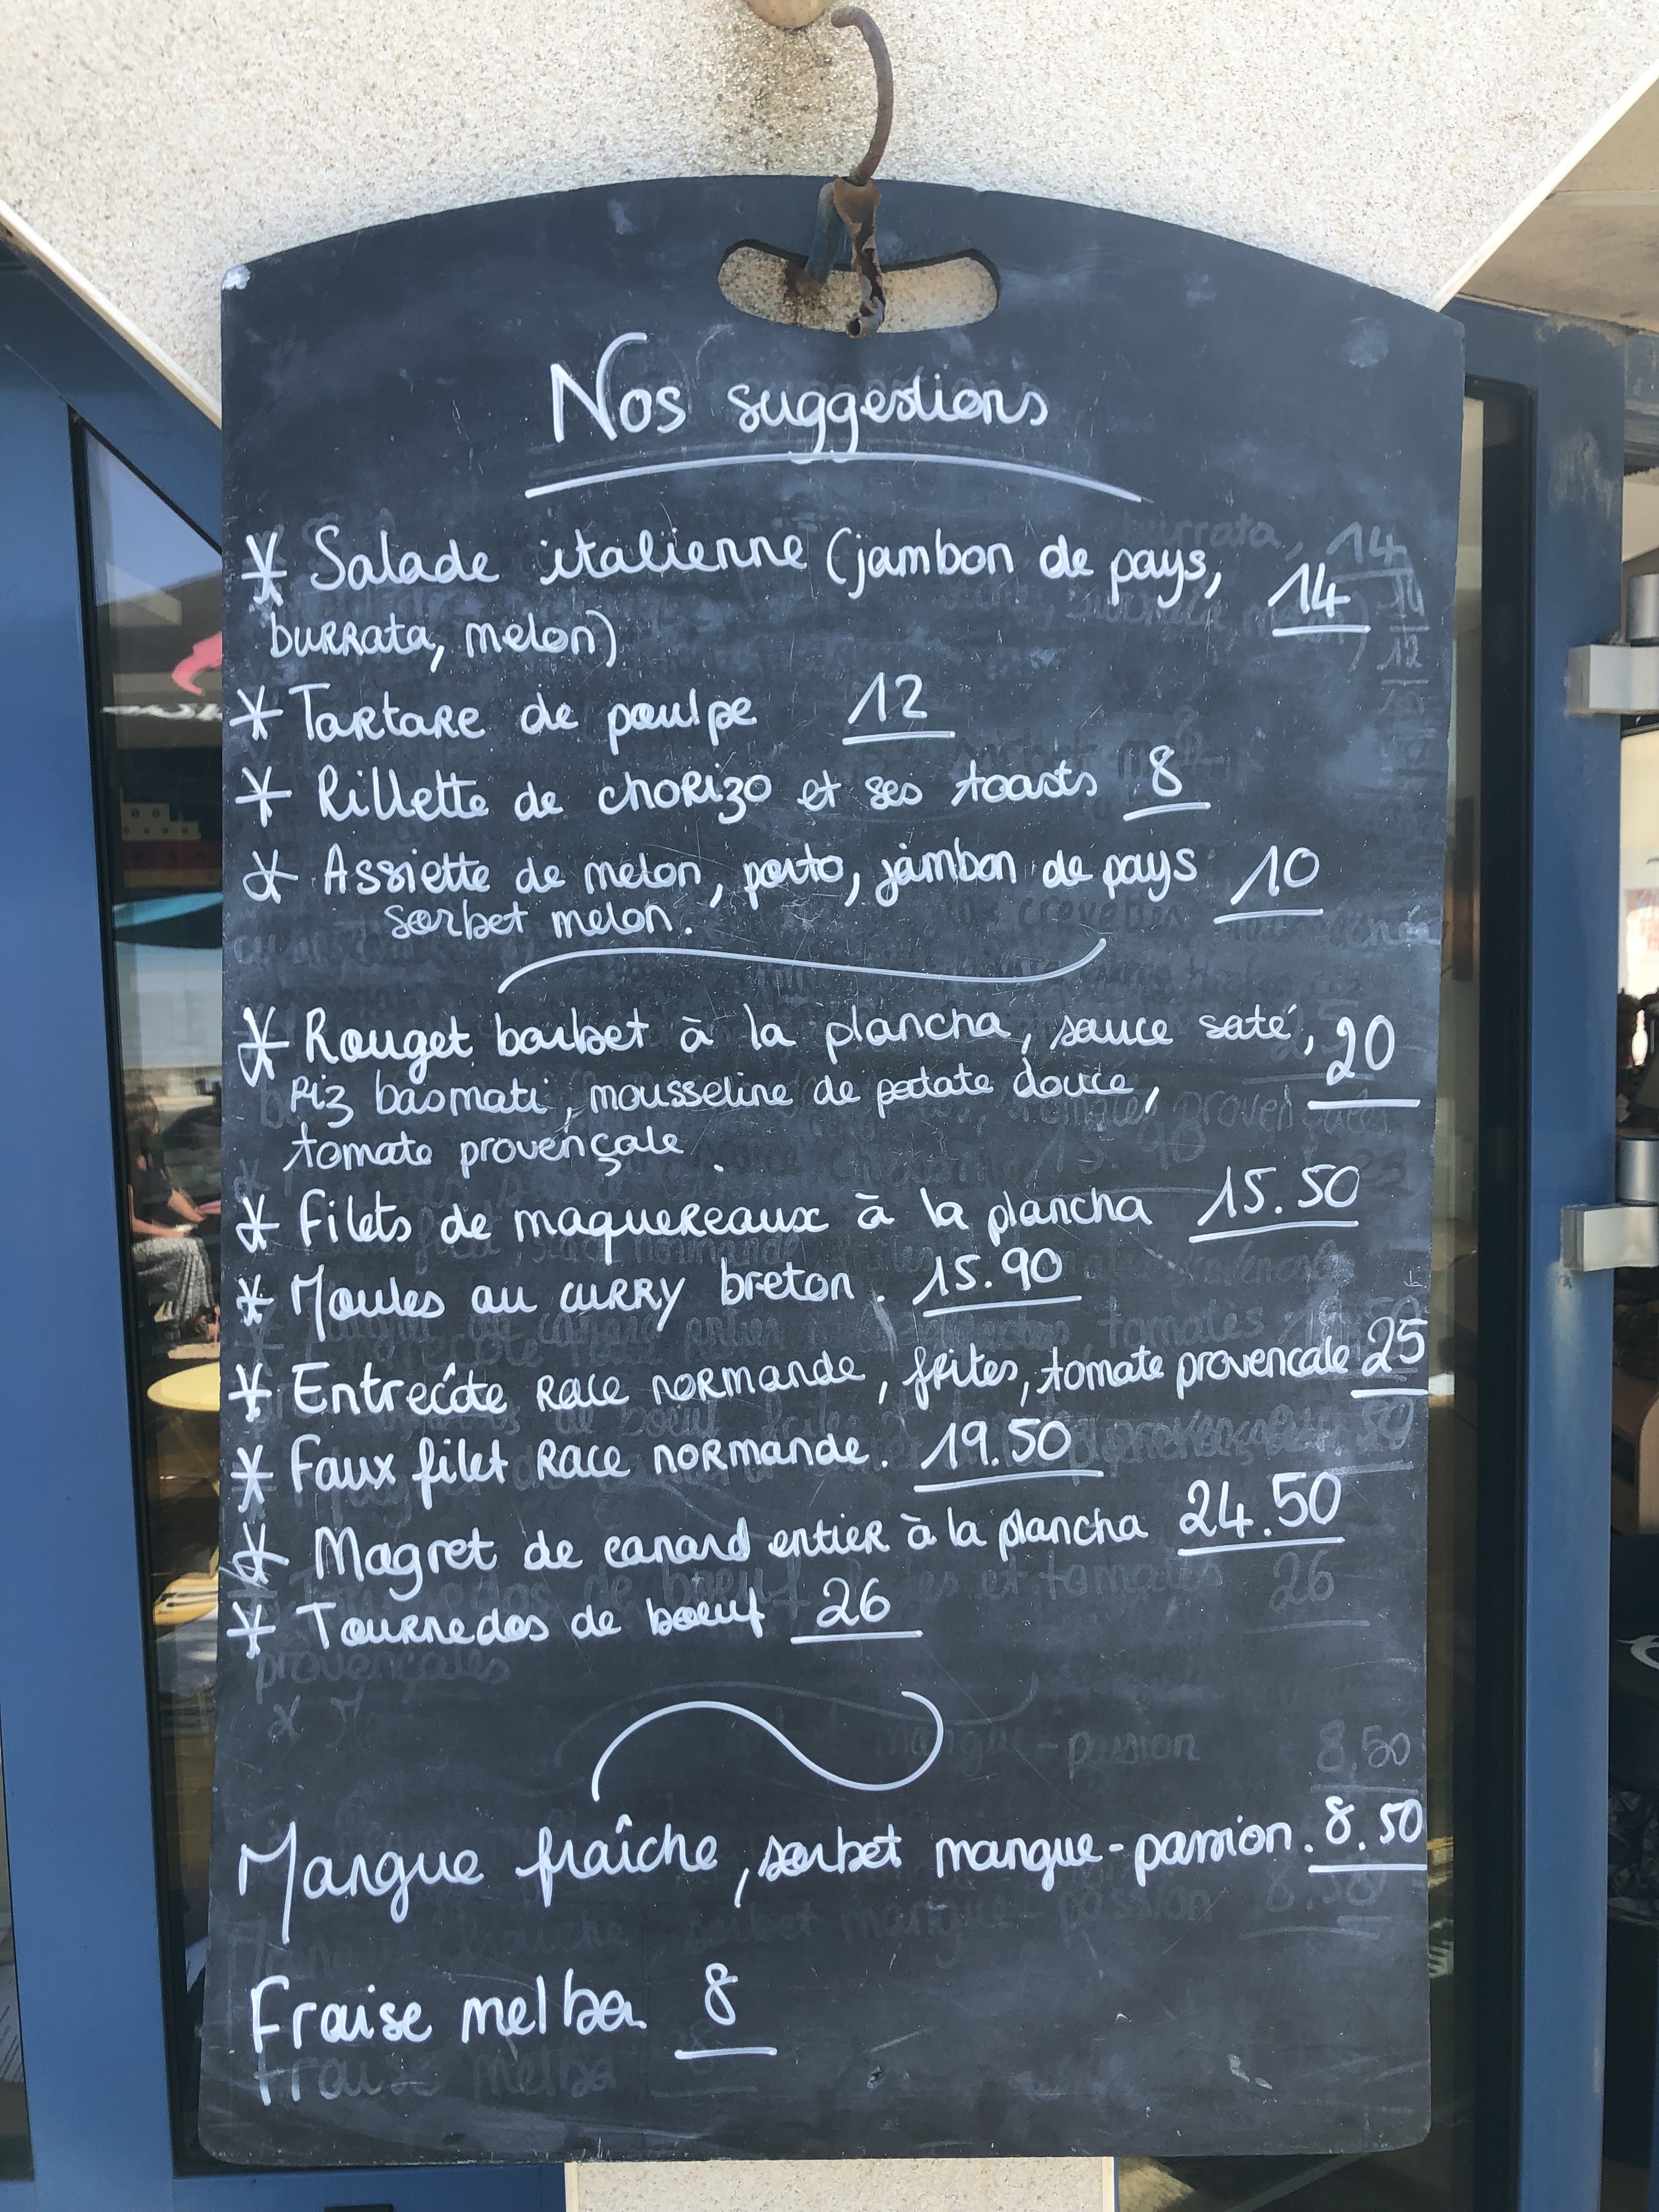 Nos suggestions
* Salade italienne (jambon de pays, 14
burrata, melon)
* Tartare de poulpe 12
* Rillette de chorizo et ses toasts 8
* Assiette de melon, porto, jambon de pays 10
sorbet melon.
* Rouget barbet à la plancha, sauce saté, 20
riz basmati, mousseline de patate douce,
tomate provençale
* Filets de maquereaux à la plancha 15.50
* Moules au curry breton. 15.90
* Entrecôte race normande, frites, tomate provencale 25
* Faux filet race normande. 19.50
* Magret de canard entier à la plancha 24.50
* Tournedos de boeuf 26
Mangue fraîche, sorbet mangue-passion. 8.50
Fraise melba 8